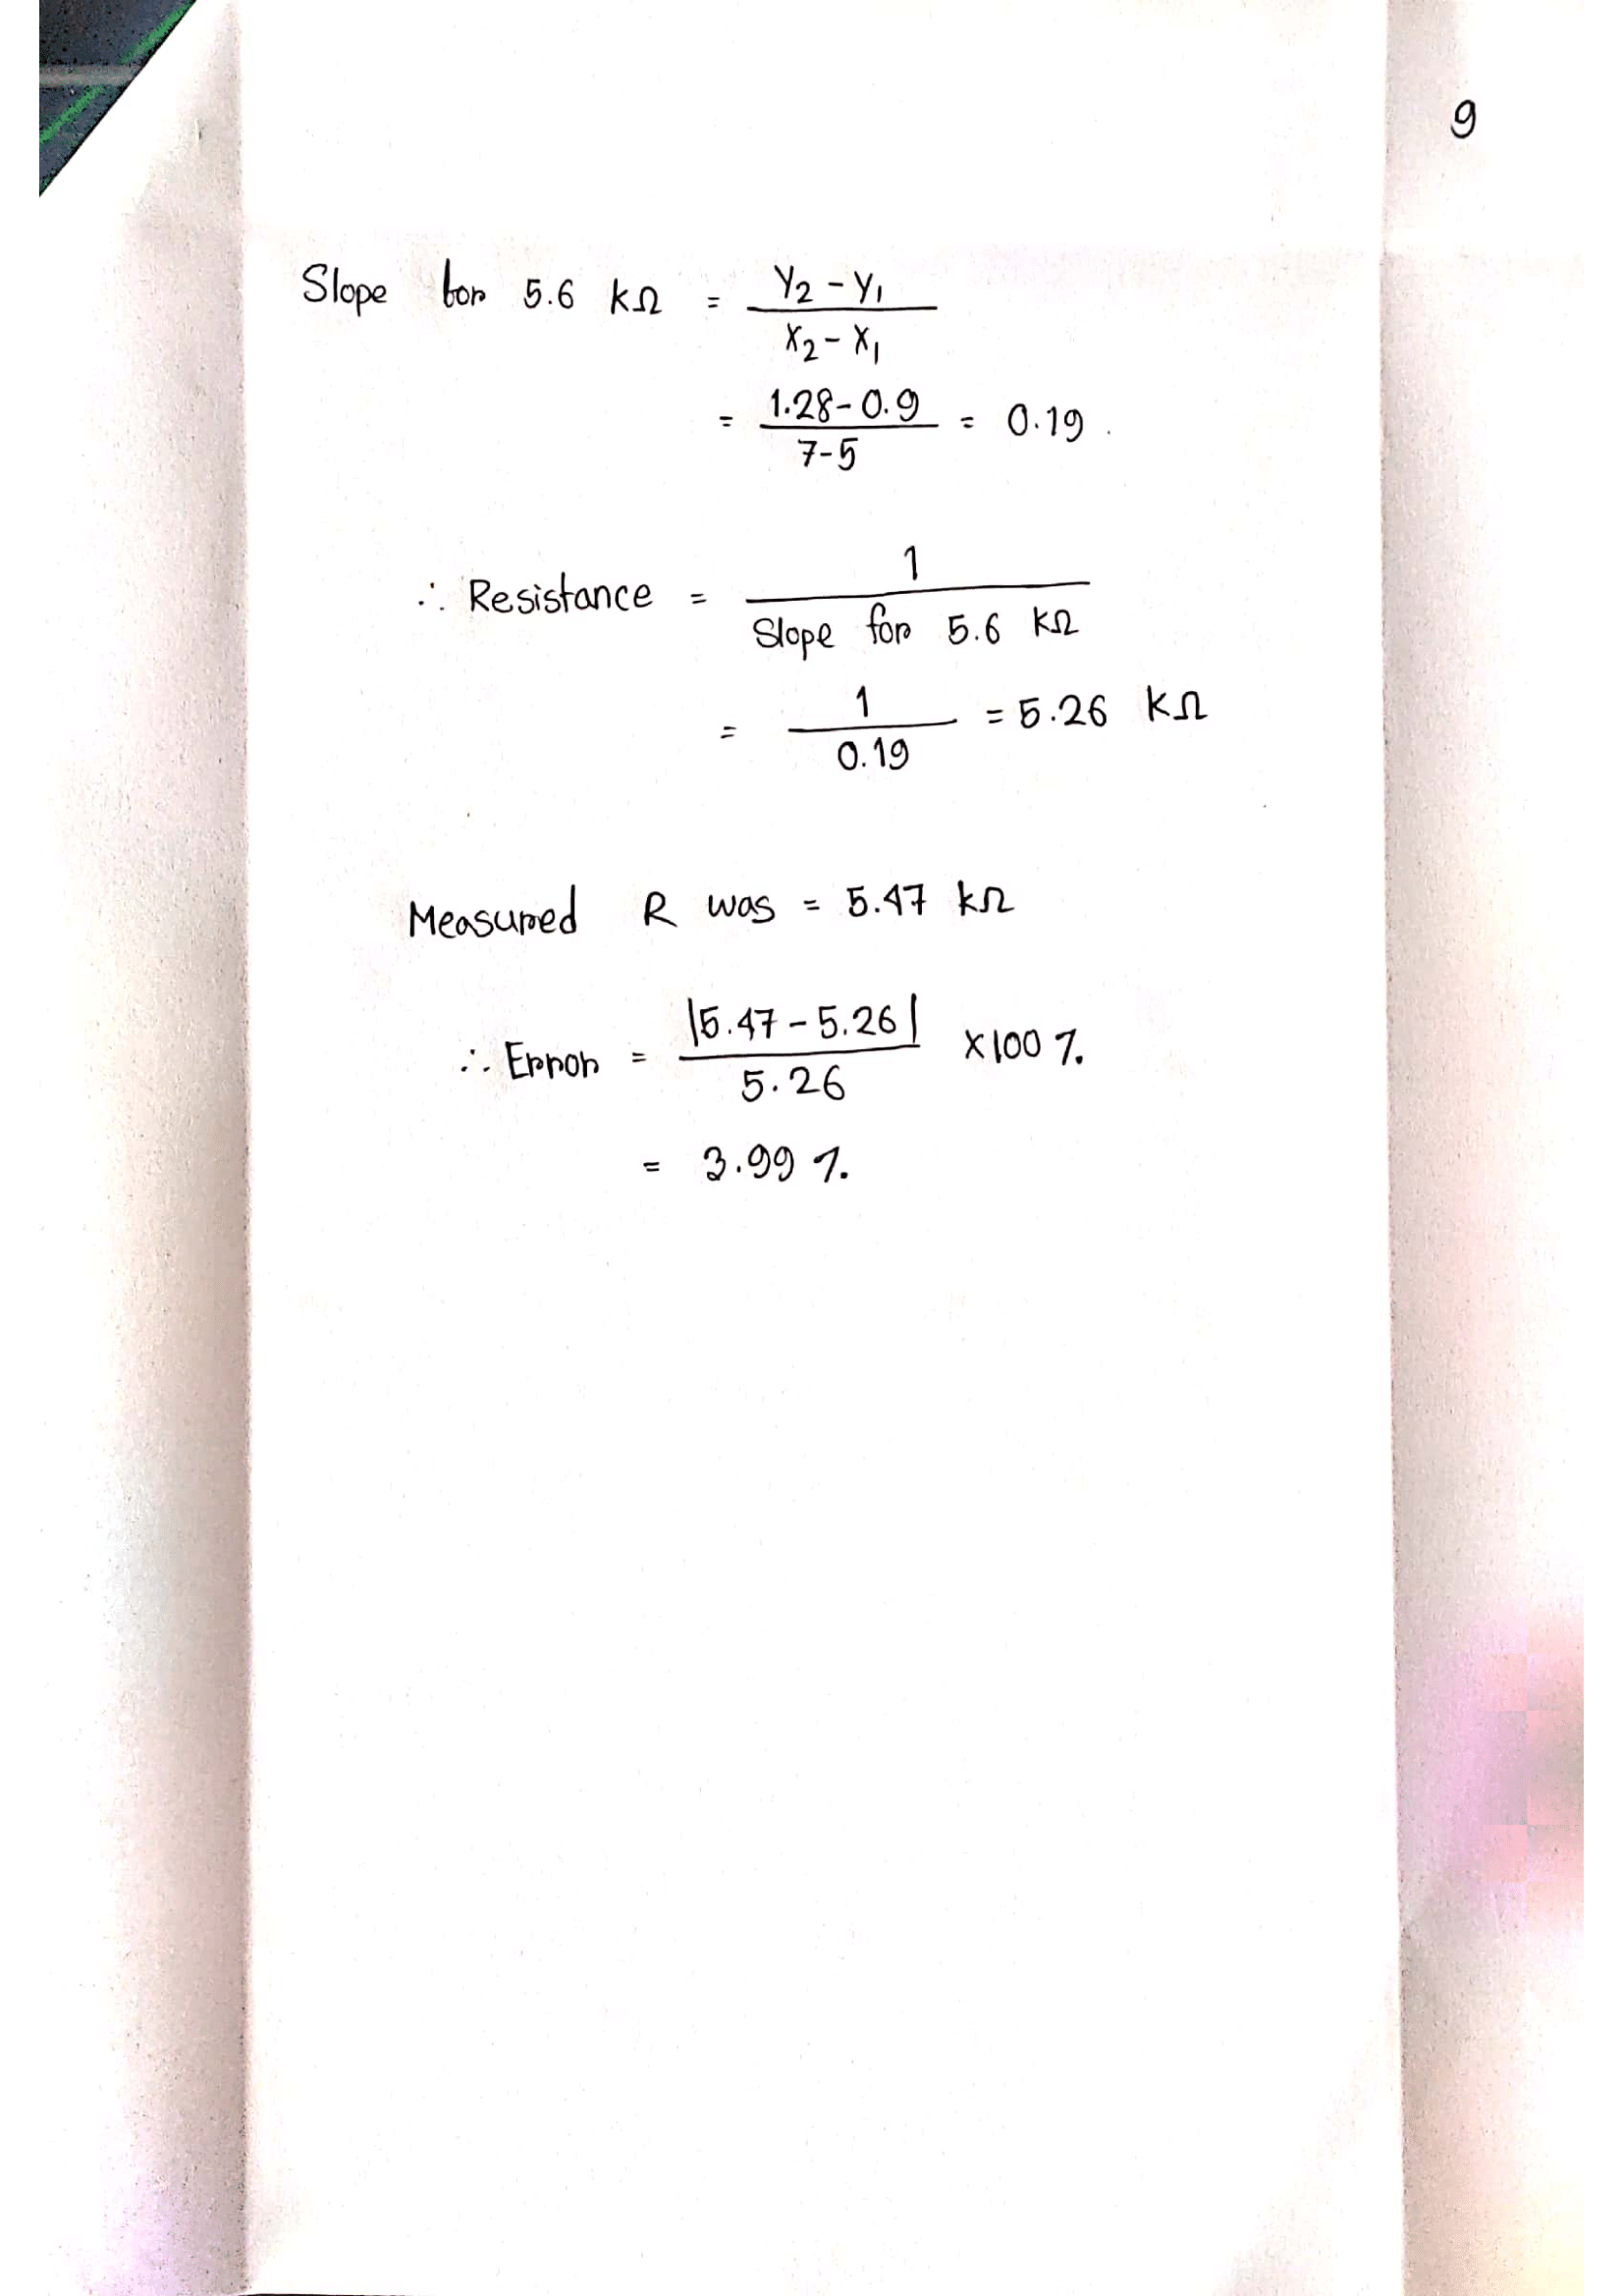 9
Slope for 5.6 kΩ = Y2 - Y1 / X2 - X1
= 1.28 - 0.9 / 7-5 = 0.19.
∴ Resistance = 1 / Slope for 5.6 kΩ
= 1 / 0.19 = 5.26 kΩ
Measured R was = 5.47 kΩ
∴ Error = |5.47 - 5.26| / 5.26 × 100 %
= 3.99 %